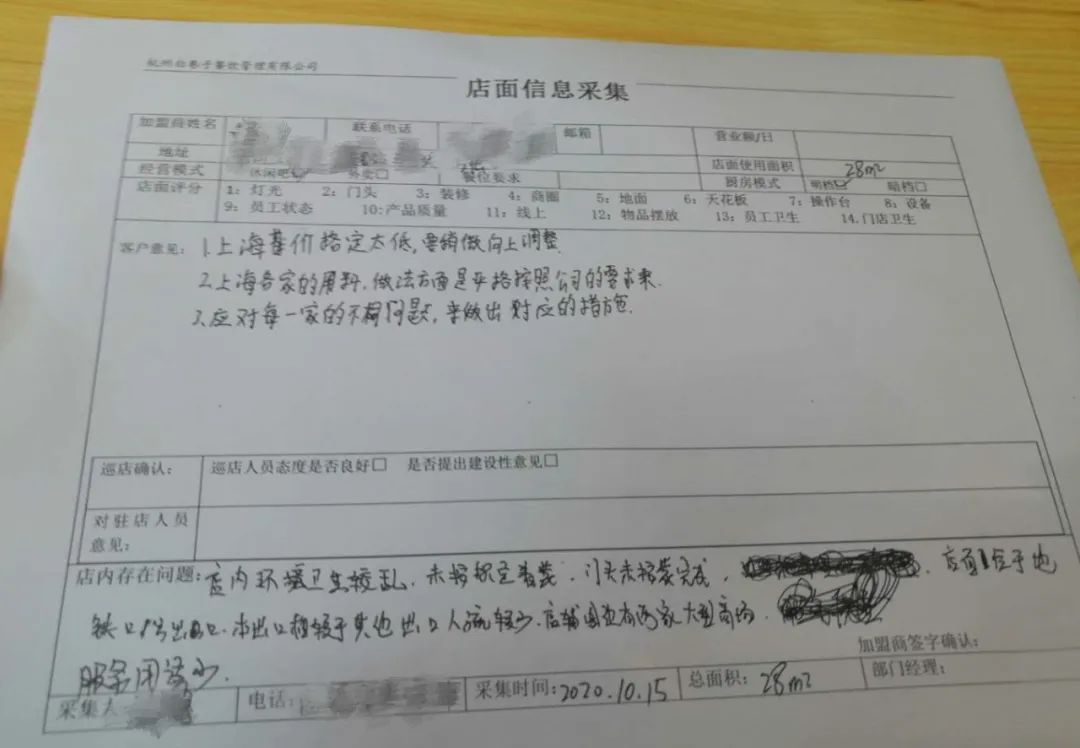 杭州后巷子餐饮管理有限公司
店面信息采集
加盟商姓名 联系电话 邮箱 营业额/日
地址 店面使用面积 28m²
经营模式 休闲吧 外卖□ 餐位要求 厨房模式 明档 暗档□
店面评分 1：灯光 2：门头 3：装修 4：商圈 5：地面 6：天花板 7：操作台 8：设备
9：员工状态 10:产品质量 11：线上 12：物品摆放 13：员工卫生 14.门店卫生
客户意见： 1.上海售价指定太低，要稍微向上调整
2.上海各家的用料，做法方面是严格按照公司的要求来.
3.应对每一家的不同问题，来做出对应的措施.
巡店确认： 巡店人员态度是否良好□ 是否提出建设性意见□
对驻店人员
意见：
店内存在问题：店内环境卫生较乱，未按规定着装，门头未按装完成， 店面位于地
铁口 出口，本出口相较于其他出口人流较少.店铺周边有两家大型商场，
服务用语少 加盟商签字确认：
采集人 电话： 采集时间：2020.10.15 总面积：28m² 部门经理：